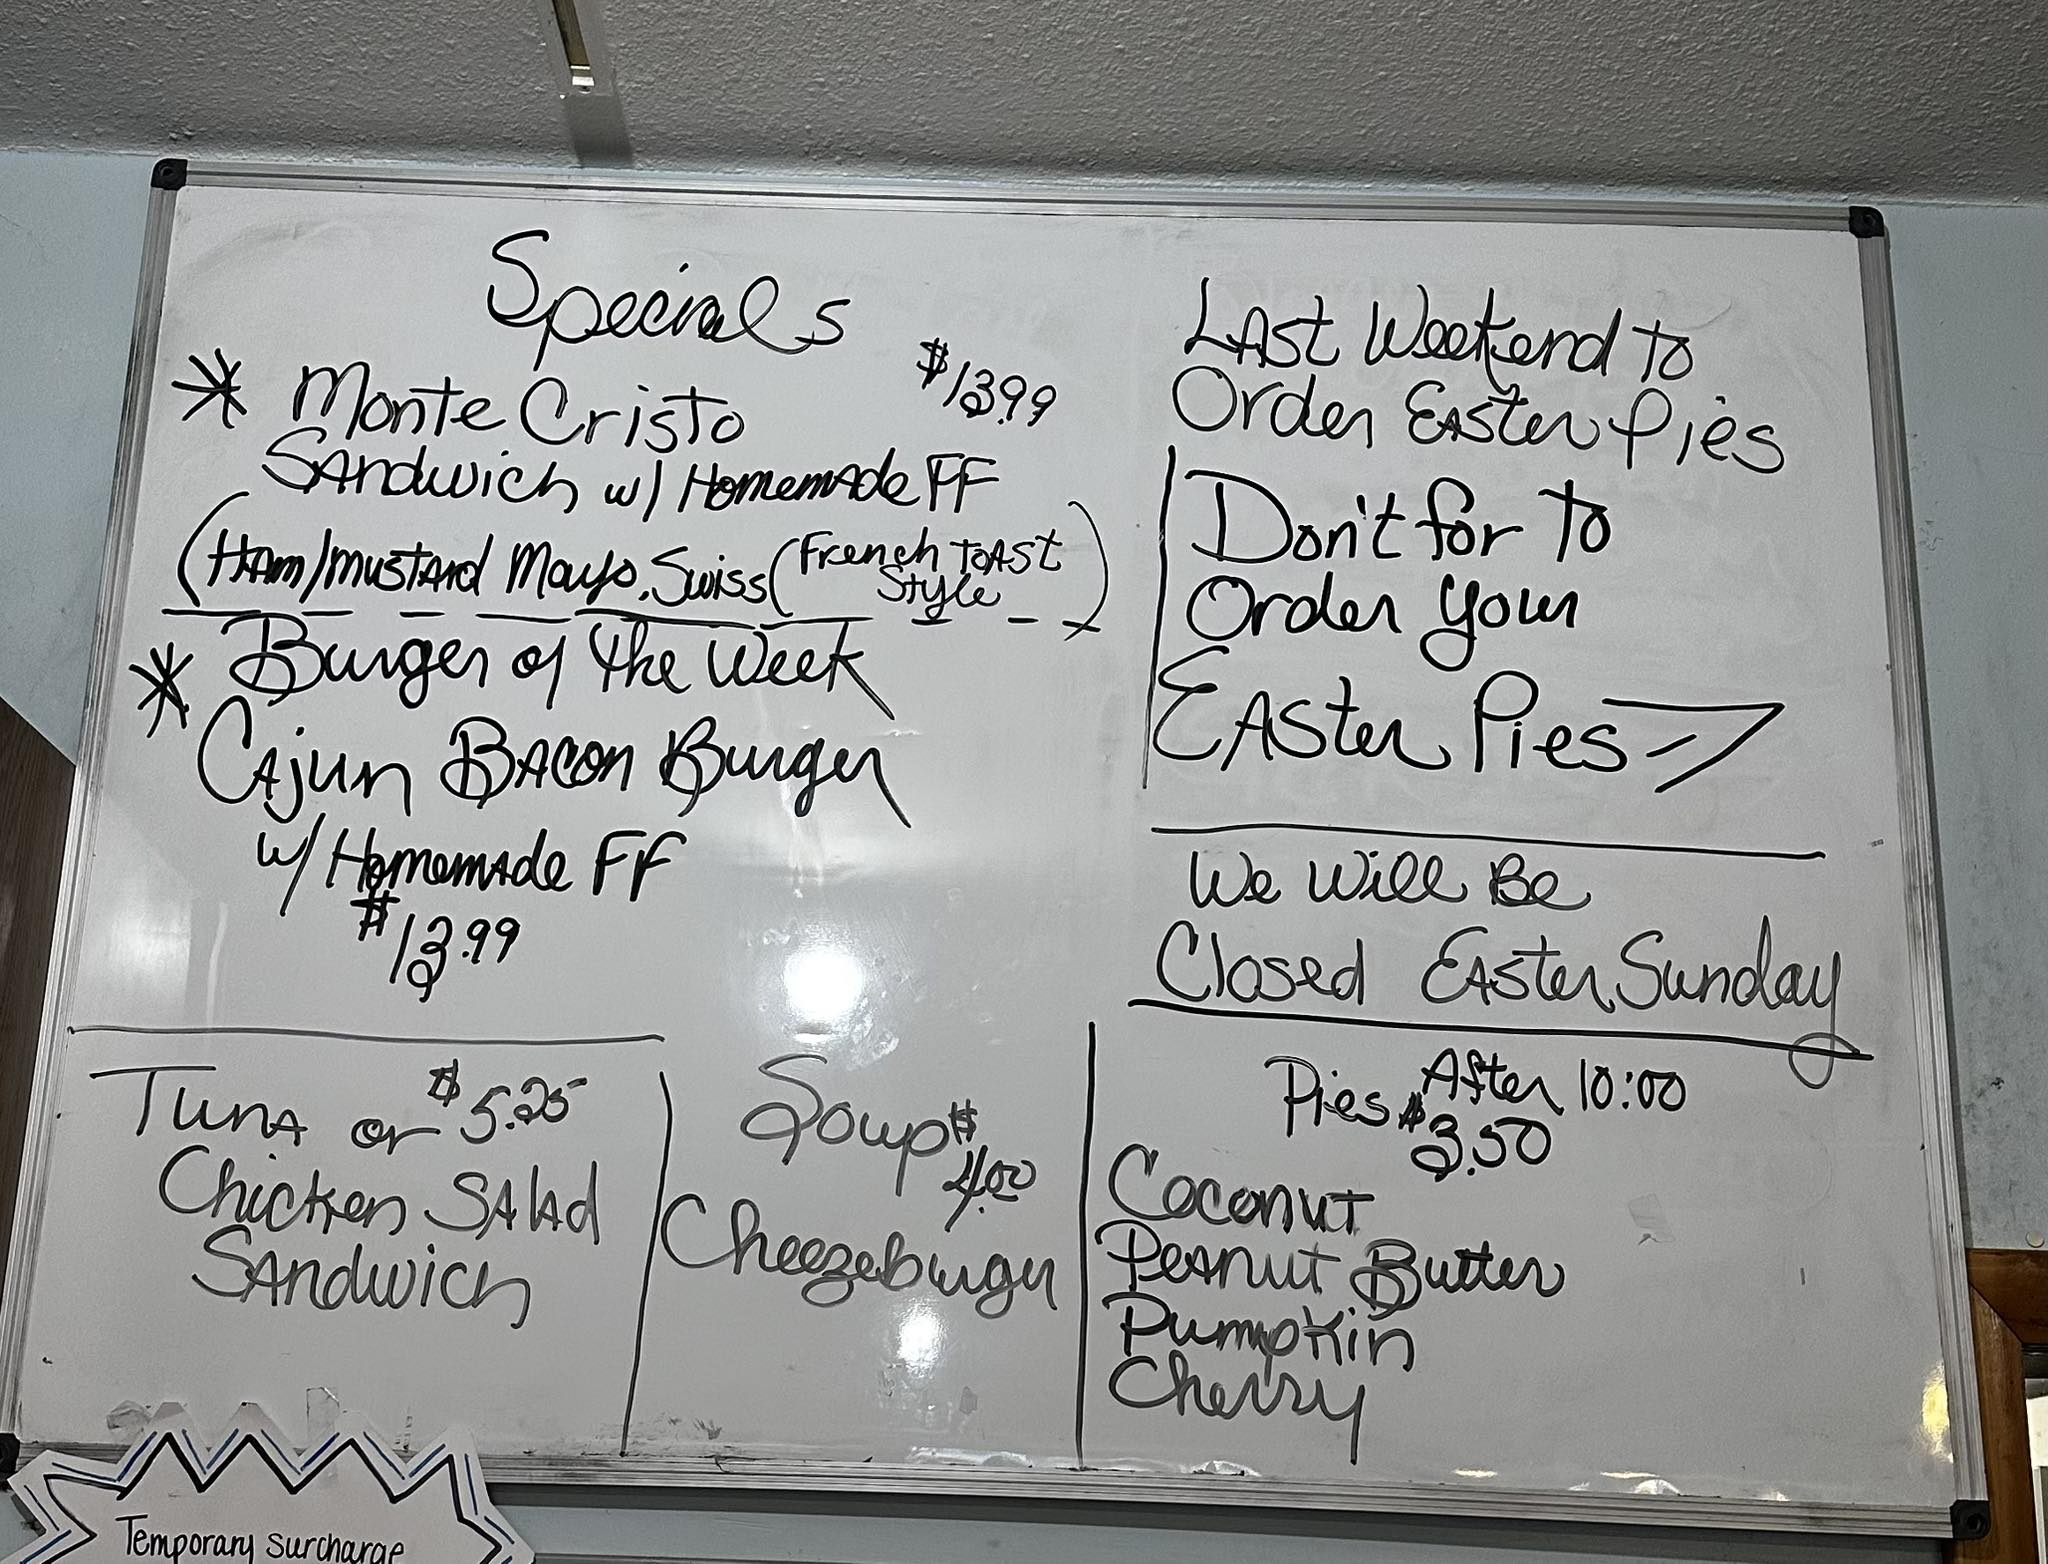 Specials
$13.99
Monte Cristo
Sandwich w/ Homemade FF
(Ham/mustard Mayo, Swiss (French Toast
Style)
Burger of the Week
Cajun Bacon Burger
w/ Homemade FF
$13.99
Tuna or $5.25
Chicken Salad
Sandwich
Soup $
4.00
Cheezeburger
Last Weekend to
Order Easter Pies
Don't for to
Order your
Easter Pies
We Will Be
Closed Easter Sunday
After 10:00
Pies $3.50
Coconut
Peanut Butter
Pumpkin
Cherry
Temporary surcharge